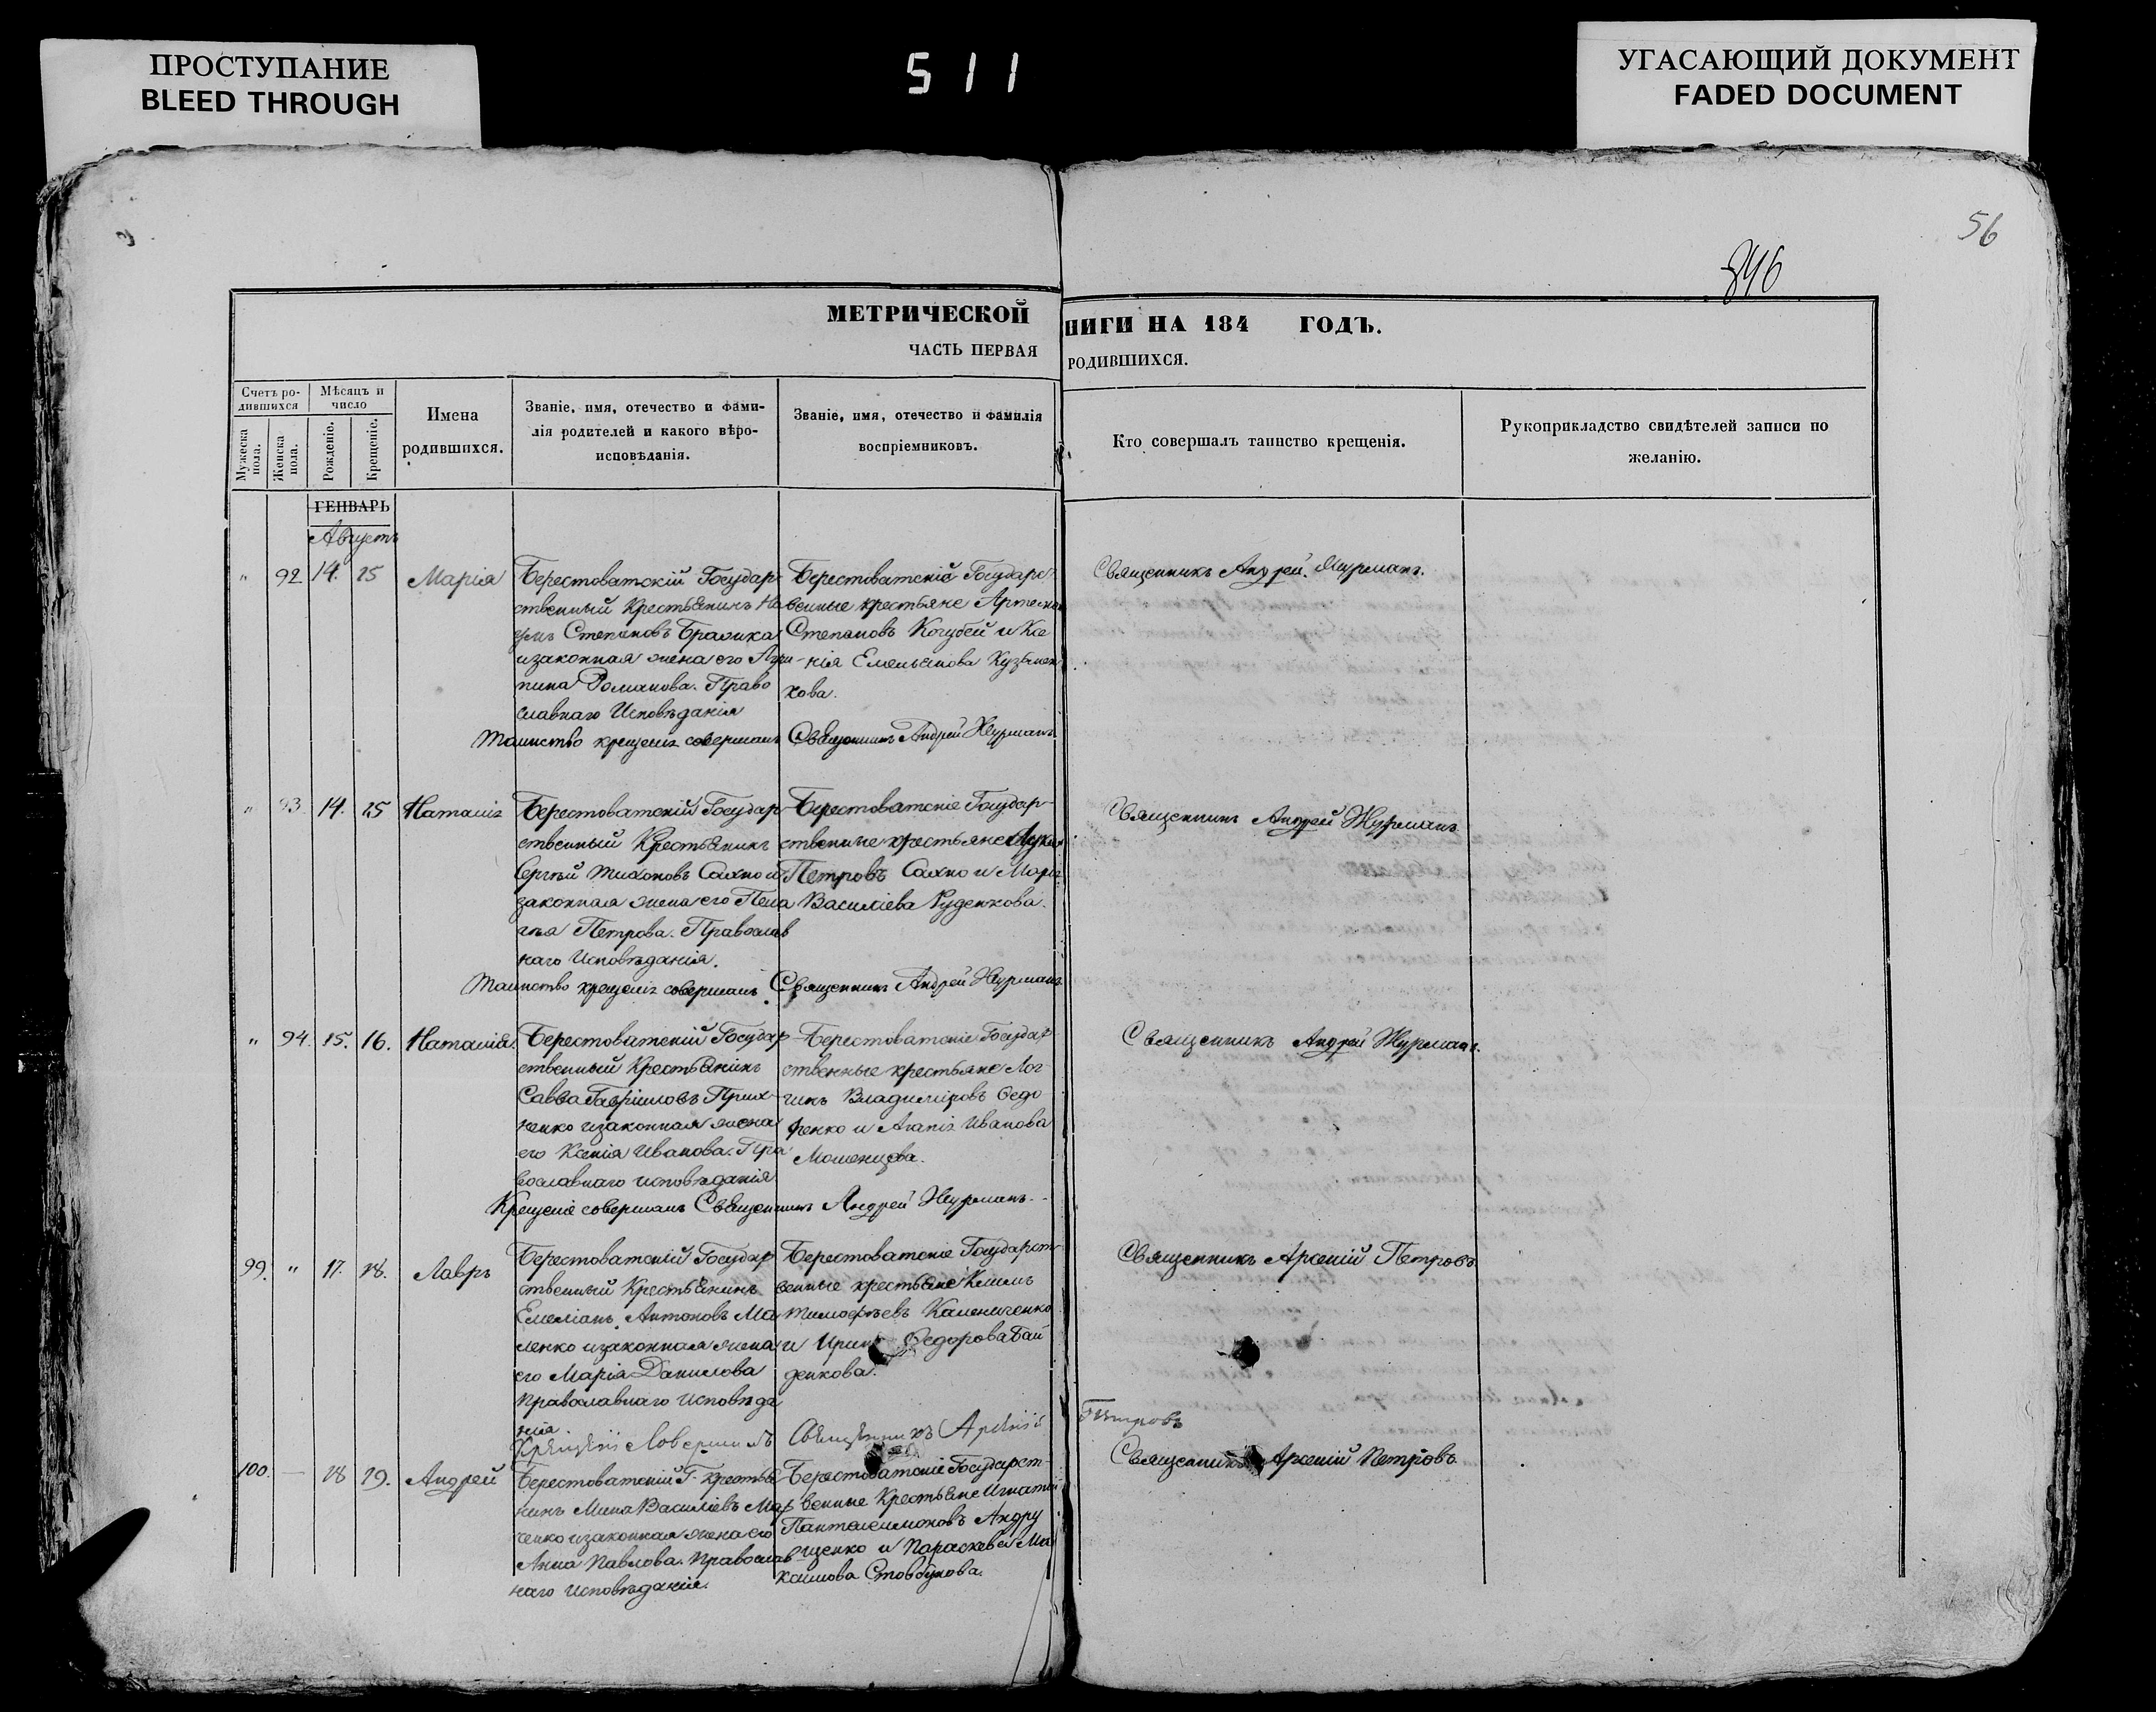 ПРОСТУПАНИЕ
BLEED THROUGH
511
УГАСАЮЩИЙ ДОКУМЕНТ
FADED DOCUMENT
56
846
МЕТРИЧЕСКОЙ НИГИ НА 184 ГОДЪ.
ЧАСТЬ ПЕРВАЯ РОДИВШИХСЯ.
Счетъ ро-
дившихся
Мужеска
пола.
Женска
пола.
Мѣсяцъ и
число
Рожденіе.
Крещеніе.
Имена
родившихся.
Званіе, имя, отечество и фами-
лія родителей и какого вѣро-
исповѣданія.
Званіе, имя, отечество и фамилія
воспріемниковъ.
Кто совершалъ таинство крещенія.
Рукоприкладство свидѣтелей записи по
желанію.
ГЕНВАРЬ
Августъ
" 92 14. 15 Марія
Берестоватскій Государ
ственный Крестьянинъ
Степановъ
и законная жена его Агри
пина Романова. Право
славнаго Исповѣданія
Берестоватскіе Государс
венные крестьяне Артемонъ
Степановъ Кочубей и Ксе
нія Емельянова Кузьмен
кова.
Священникъ Андрей Журманъ.
Таинство крещенія совершалъ Священникъ Андрей Журманъ
" 93 14. 15 Наталія
Берестоватскій Государ
ственный Крестьянинъ
Сергѣй Тихоновъ Сахно и
законная жена его Пела
гія Петрова. Православ
наго Исповѣданія.
Берестоватскіе Государ
ственные крестьяне Лука
Петровъ Сахно и Марія
Василіева Руденкова.
Священникъ Андрей Журманъ
Таинство крещенія совершалъ Священникъ Андрей Журманъ
" 94. 15. 16. Наталія.
Берестоватскій Государ
ственный Крестьянинъ
Савва Гавріиловъ Прих
ченко и законная жена
его Ксенія Иванова. Пра
вославнаго исповѣданія
Берестоватскіе Государ
ственные крестьяне Лог
гинъ Владиміровъ Федо
ренко и Агапія Иванова
Священникъ Андрей Журманъ.
Крещеніе совершалъ Священникъ Андрей Журманъ.
99. " 17. 18. Лавръ
Берестоватскій Государ
ственный Крестьянинъ
Емеліанъ Антоновъ Ма
ленко и законная жена
его Марія Данилова
православнаго исповѣда
нія.
Берестоватскіе Государст
венные крестьяне Климъ
Тимофѣевъ Калениченко
и Ирина Федорова Гай
денкова.
Священникъ Арсеній Петровъ
Крещеніе совершилъ Священникъ Арсеній Петровъ
100. — 18 19. Андрей
Берестоватскій Г. крестья
нинъ Мина Василіевъ Мар
ченко и законная жена его
Анна Павлова. Православ
наго исповѣданія.
Берестоватскіе Государст
венные Крестьяне Игнатій
Пантелеимоновъ Андру
щенко и Параскева Ма
ксимова Стовбунова.
Священникъ Арсеній Петровъ